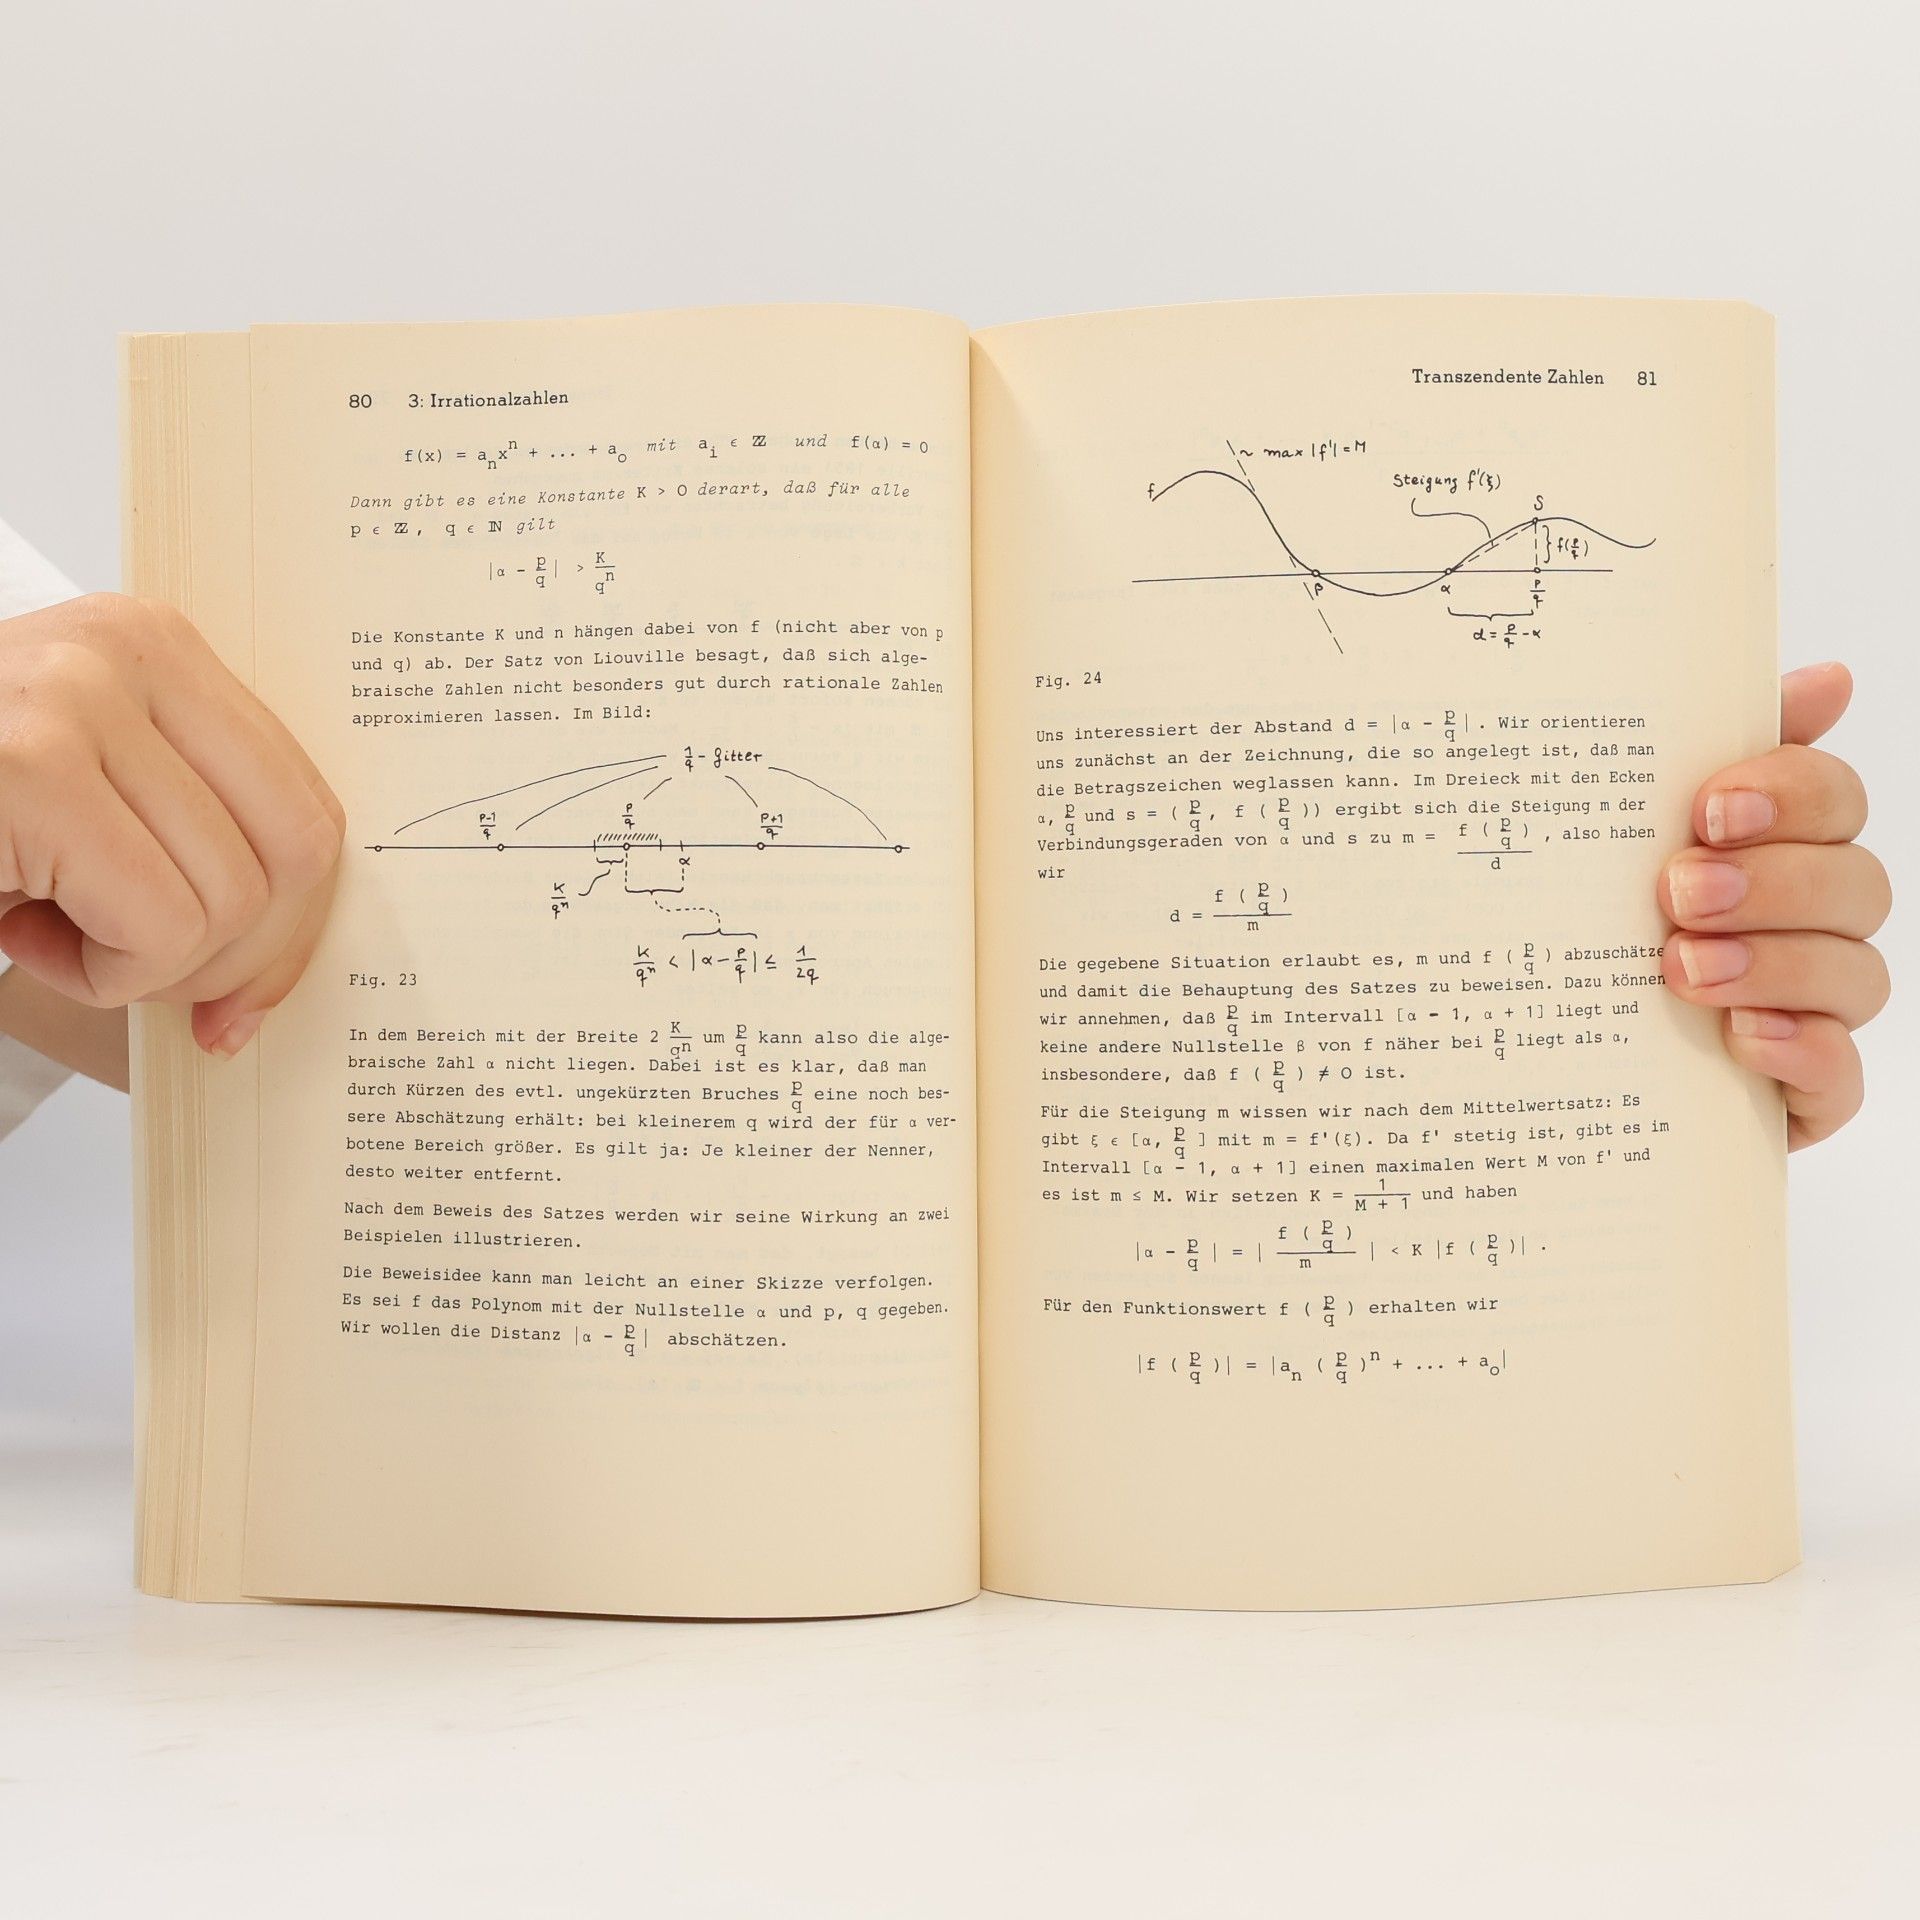 80 3: Irrationalzahlen
f(x) = aₙxⁿ + ... + a₀ mit aᵢ ϵ ℤ und f(α) = 0
Dann gibt es eine Konstante K > 0 derart, daß für alle
p ϵ ℤ, q ϵ ℕ gilt
|α - p/q| > K/qⁿ
Die Konstante K und n hängen dabei von f (nicht aber von p
und q) ab. Der Satz von Liouville besagt, daß sich alge-
braische Zahlen nicht besonders gut durch rationale Zahlen
approximieren lassen. Im Bild:
1/q - Gitter
p-1/q p/q p+1/q
α
K/qⁿ
K/qⁿ < |α - p/q| ≤ 1/2q
Fig. 23
In dem Bereich mit der Breite 2 K/qⁿ um p/q kann also die alge-
braische Zahl α nicht liegen. Dabei ist es klar, daß man
durch Kürzen des evtl. ungekürzten Bruches p/q eine noch bes-
sere Abschätzung erhält: bei kleinerem q wird der für α ver-
botene Bereich größer. Es gilt ja: Je kleiner der Nenner,
desto weiter entfernt.
Nach dem Beweis des Satzes werden wir seine Wirkung an zwei
Beispielen illustrieren.
Die Beweisidee kann man leicht an einer Skizze verfolgen.
Es sei f das Polynom mit der Nullstelle α und p, q gegeben.
Wir wollen die Distanz |α - p/q| abschätzen.
Transzendente Zahlen 81
~ max |f'| = M
Steigung f'(ξ)
f
S
} f(p/q)
β α p/q
d = p/q - α
Fig. 24
Uns interessiert der Abstand d = |α - p/q|. Wir orientieren
uns zunächst an der Zeichnung, die so angelegt ist, daß man
die Betragszeichen weglassen kann. Im Dreieck mit den Ecken
α, p/q und s = (p/q, f (p/q)) ergibt sich die Steigung m der
Verbindungsgeraden von α und s zu m = f (p/q)/d, also haben
wir
d = f (p/q)/m
Die gegebene Situation erlaubt es, m und f (p/q) abzuschätze
und damit die Behauptung des Satzes zu beweisen. Dazu können
wir annehmen, daß p/q im Intervall [α - 1, α + 1] liegt und
keine andere Nullstelle β von f näher bei p/q liegt als α,
insbesondere, daß f (p/q) ≠ 0 ist.
Für die Steigung m wissen wir nach dem Mittelwertsatz: Es
gibt ξ ϵ [α, p/q] mit m = f'(ξ). Da f' stetig ist, gibt es im
Intervall [α - 1, α + 1] einen maximalen Wert M von f' und
es ist m ≤ M. Wir setzen K = 1/M + 1 und haben
|α - p/q| = |f (p/q)/m| < K |f (p/q)|.
Für den Funktionswert f (p/q) erhalten wir
|f (p/q)| = |aₙ (p/q)ⁿ + ... + a₀|